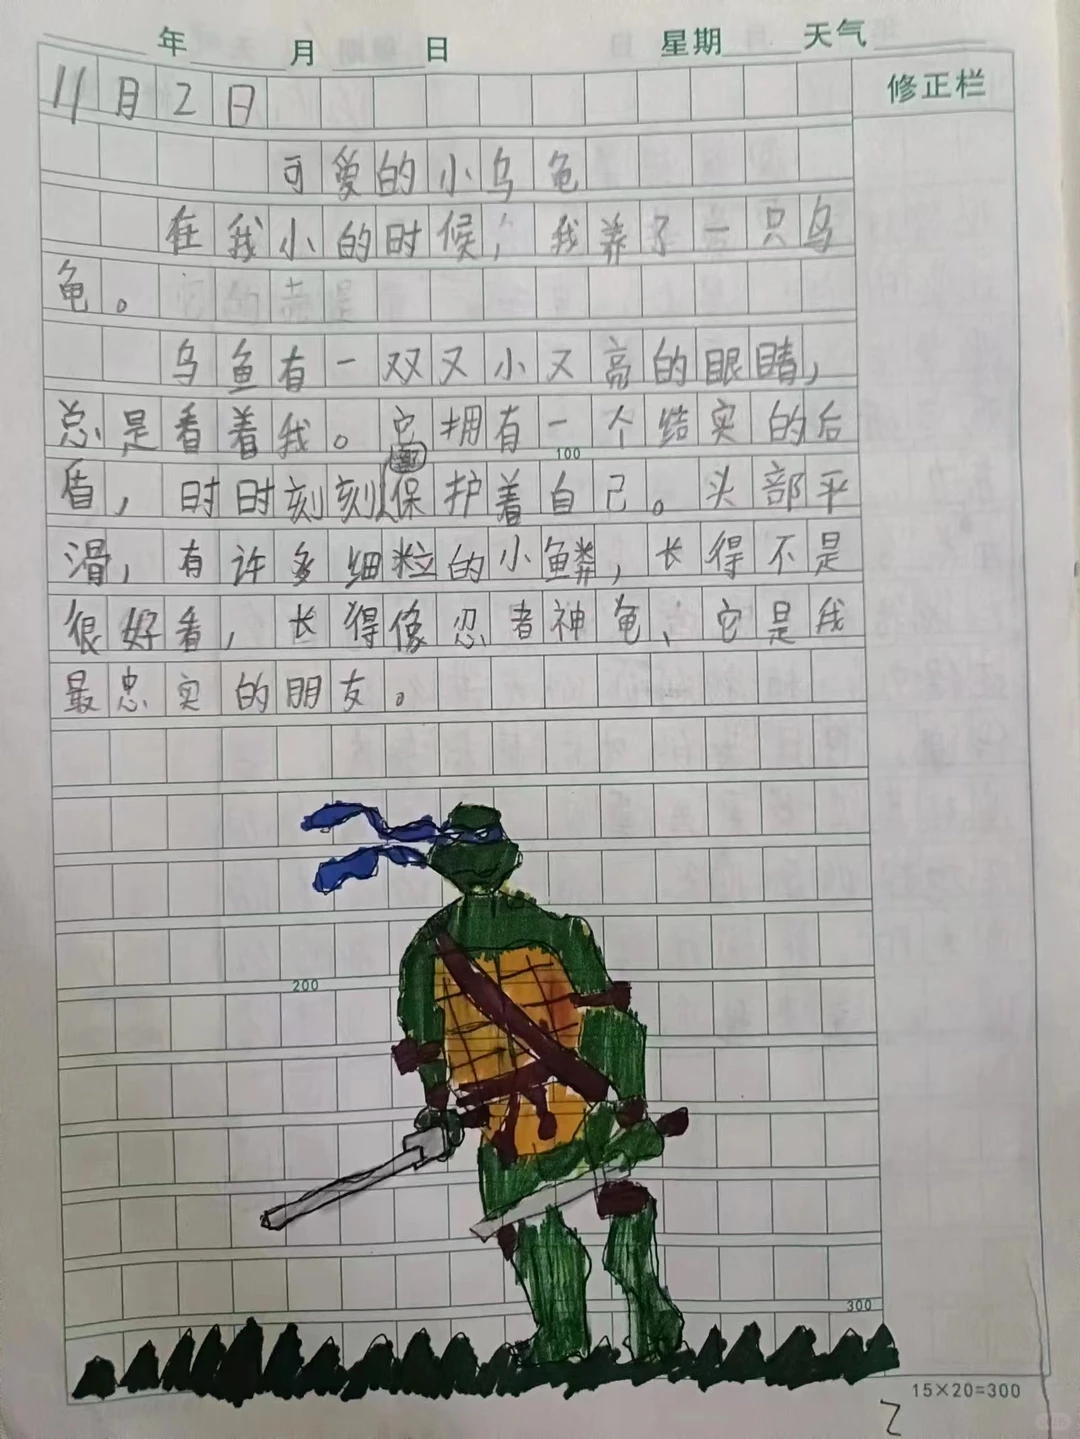 年 月 日 星期 天气
修正栏
11月2日
可爱的小乌龟
在我小的时候，我养了一只乌
龟。
乌鱼有一双又小又亮的眼睛，
总是看着我。它拥有一个结实的后
100
盾，时时刻刻保护着自己。头部平
滑，有许多细粒的小鳞，长得不是
很好看，长得像忍者神龟、它是我
最忠实的朋友。
200
300
15×20=300
2